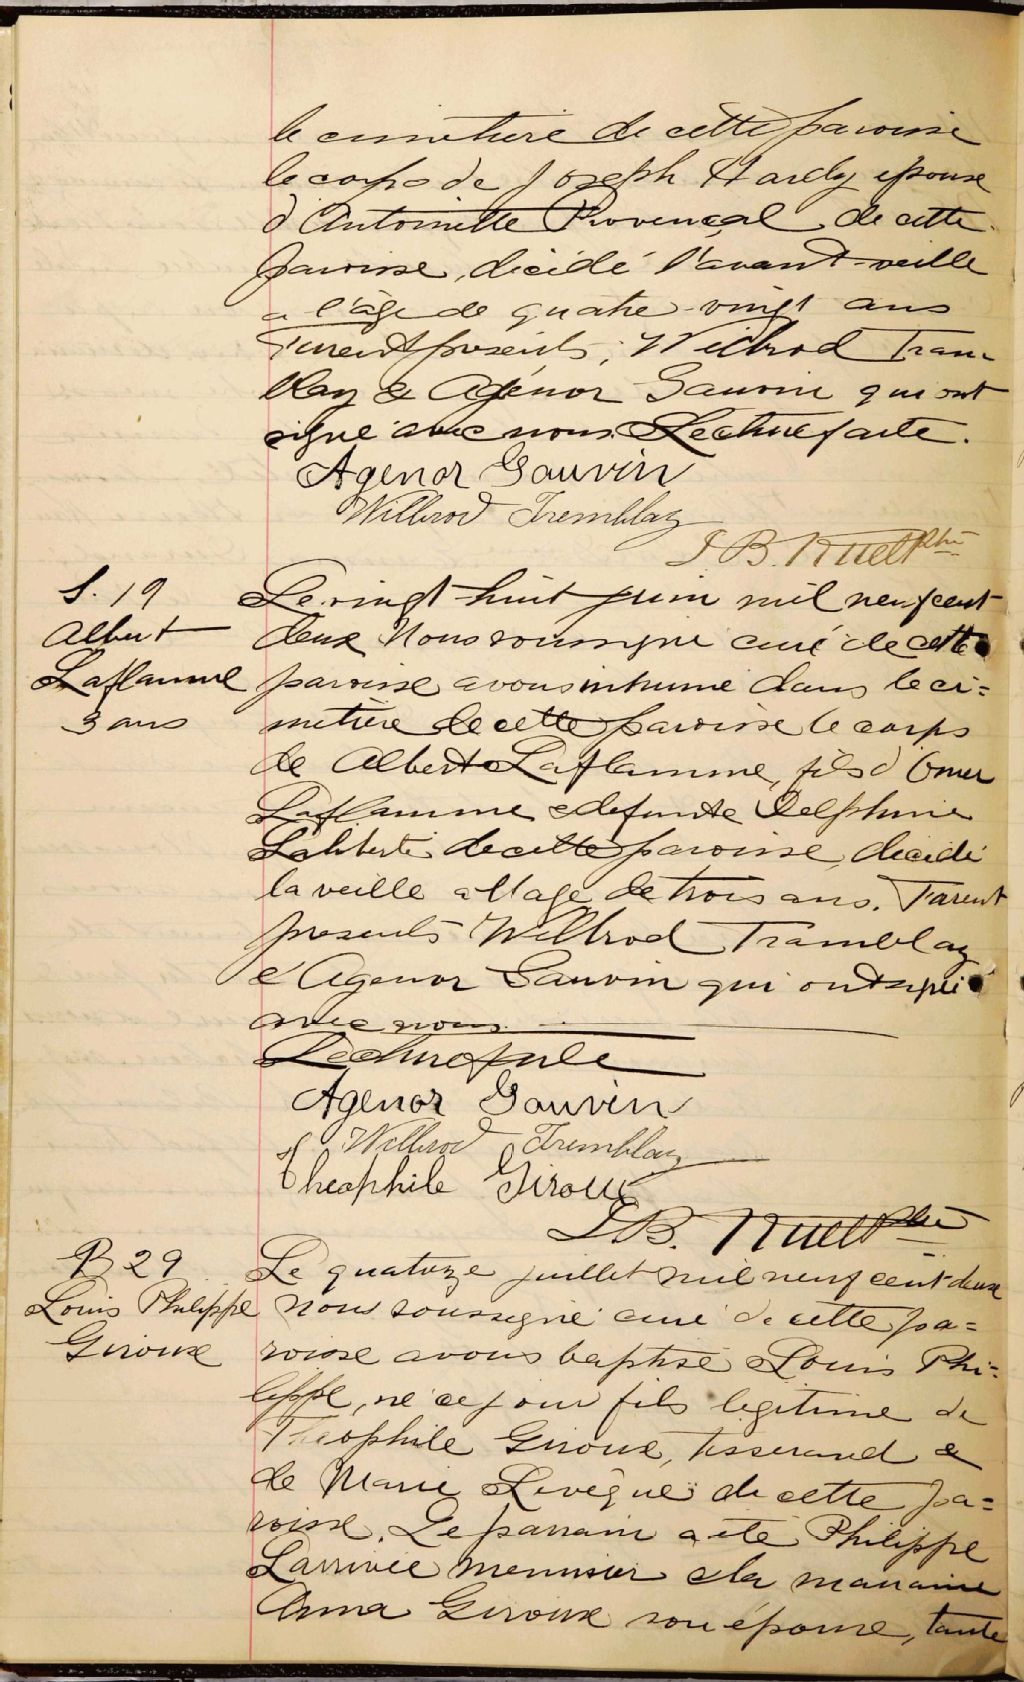 le cimetière de cette paroisse
le corps de Joseph Hardy epoux
d'Antoinette Provençal de cette
paroisse, décédé l'avant-veille
a l'âge de quatre-vingt ans
Furent présents, Wilbrod Tram-
blay & Agénor Gauvin qui ont
signé avec nous. Lecture faite.
Agenor Gauvin
Wilbrod Tremblay
J. B. Ruel Ptre
S. 19
Albert
Laflamme
3 ans
Le vingt huit juin mil neuf cent
deux Nous soussigné curé de cette
paroisse avons inhumé dans le ci=
metière de cette paroisse le corps
de Albert Laflamme, fils d'Omer
Laflamme & defunte Delphine
Laliberté de cette paroisse, décédé
la veille a l'age de trois ans. Furent
presents Wilbrod Tramblay
& Agenor Gauvin qui ont signé
avec nous.
Lecture faite
Agenor Gauvin
Wilbrod Tremblay
Theophile Giroux
J. B. Ruel Ptre
B 29
Louis Philippe
Giroux
Le quatorze juillet mil neuf cent deux
nous soussigné curé de cette pa=
roisse avons baptisé Louis Phi=
lippe, né ce jour fils legitime de
Theophile Giroux, tisserand &
de Marie Levêque de cette pa=
roisse. Le parrain a été Philippe
Larrivée menuisier & la marraine
Anna Giroux son épouse, tante